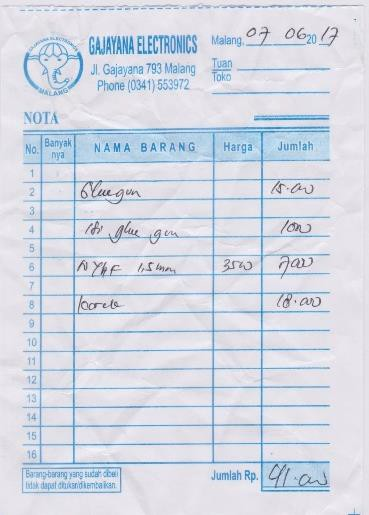 GAJAYANA ELECTRONICS
MALANG
GAJAYANA ELECTRONICS
Jl. Gajayana 793 Malang
Phone (0341) 553972
Malang, 07 06 2017
Tuan
Toko
NOTA
No. Banyak nya NAMA BARANG Harga Jumlah
1
2 Gluegun 15.000
3
4 isi glue gun 1000
5
6 NYAF 1,5mm 3500 7000
7
8 18.000
9
10
11
12
13
14
15
16
Barang-barang yang sudah dibeli
tidak dapat ditukar/dikembalikan.
Jumlah Rp. 41.000